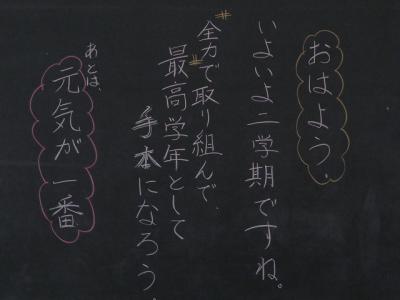 おはよう、
いよいよ二学期ですね。
全力で取り組んで、
最高学年として
手本になろう。
あとは、
元気が一番